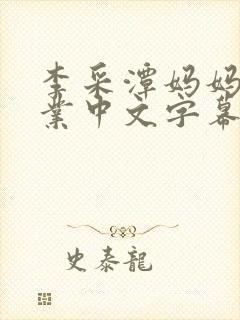 李采潭妈妈
業中文字幕
史泰龍